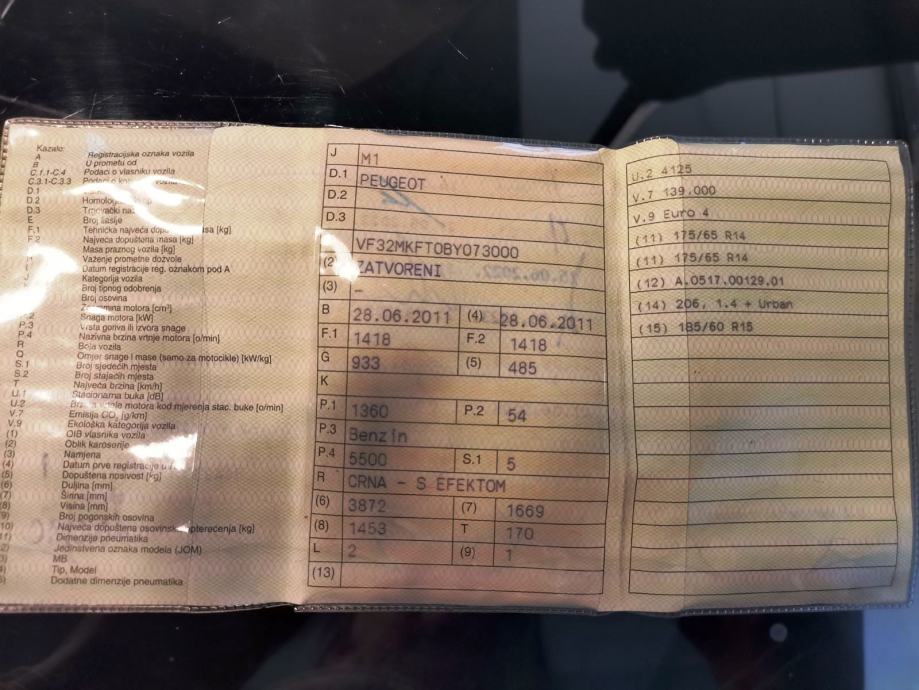 Kazalo:
A Registracijska oznaka vozila
B U prometu od
C.1.1-C.4 Podaci o vlasniku vozila
C.3.1-C.3.3 Podaci o
D.1
D.2 Homolog
D.3 Trgovački
E Broj šasije
F.1 Tehnička najveća masa [kg]
F.2 Najveća dopuštena masa [kg]
Masa praznog vozila [kg]
Važenje prometne dozvole
Datum registracije reg. oznakom pod A
Kategorija vozila
Broj tipnog odobrenja
Broj osovina
motora [cm³]
P.2 Snaga motora [kW]
P.3 Vrsta goriva ili izvora snage
P.4 Nazivna brzina vrtnje motora [o/min]
R Boja vozila
Q Omjer snage i mase (samo za motocikle) [kW/kg]
S.1 Broj sjedećih mjesta
S.2 Broj stajaćih mjesta
T Najveća brzina [km/h]
U.1 Stacionarna buka [dB]
U.2 motora kod mjerenja stac. buke [o/min]
V.7 Emisija CO₂ [g/km]
V.9 Ekološka kategorija vozila
(1) OIB vlasnika vozila
(2) Oblik karoserije
(3) Namjena
(4) Datum prve registracije u
(5) Dopuštena nosivost [kg]
(6) Duljina [mm]
(7) Širina [mm]
(8) Visina [mm]
(9) Broj pogonskih osovina
10) Najveća dopuštena osovinsk opterećenja [kg]
11) Dimenzije pneumatika
2) Jedinstvena oznaka modela (JOM)
MB
Tip, Model
Dodatne dimenzije pneumatika
J M1
D.1 PEUGEOT
D.2
D.3
VF32MKFT0BY073000
(2 ZATVORENI
(3) –
B 28.06.2011 (4) 28.06.2011
F.1 1418 F.2 1418
G 933 (5) 485
K
P.1 1360 P.2 54
P.3 Benzin
P.4 5500 S.1 5
R CRNA - S EFEKTOM
(6) 3872 (7) 1669
(8) 1453 T 170
L 2 (9) 1
(13)
U.2 4125
V.7 139.000
V.9 Euro 4
(11) 175/65 R14
(11) 175/65 R14
(12) A.0517.00129.01
(14) 206, 1.4 + Urban
(15) 185/60 R15